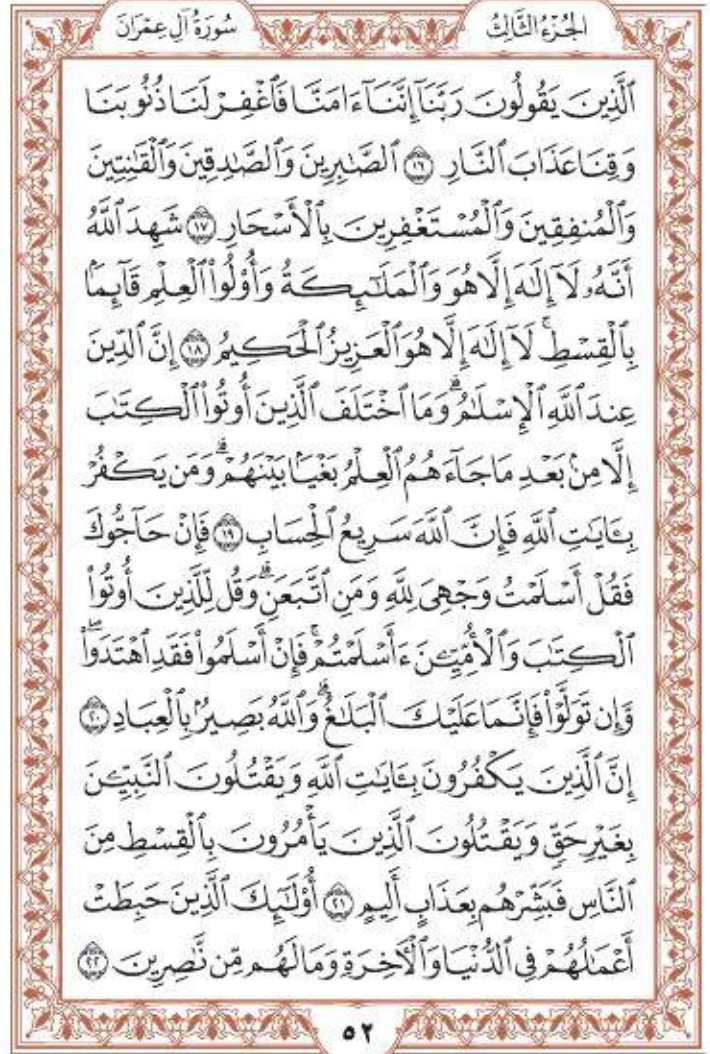 الجُزْءُ الثَّالِثُ
سُورَةُ آلِ عِمْرَانَ
ٱلَّذِينَ يَقُولُونَ رَبَّنَآ إِنَّنَآ ءَامَنَّا فَٱغْفِرْ لَنَا ذُنُوبَنَا
وَقِنَا عَذَابَ ٱلنَّارِ ١٦ ٱلصَّٰبِرِينَ وَٱلصَّٰدِقِينَ وَٱلْقَٰنِتِينَ
وَٱلْمُنفِقِينَ وَٱلْمُسْتَغْفِرِينَ بِٱلْأَسْحَارِ ١٧ شَهِدَ ٱللَّهُ
أَنَّهُۥ لَآ إِلَٰهَ إِلَّا هُوَ وَٱلْمَلَٰٓئِكَةُ وَأُو۟لُوا۟ ٱلْعِلْمِ قَآئِمًۢا
بِٱلْقِسْطِۚ لَآ إِلَٰهَ إِلَّا هُوَ ٱلْعَزِيزُ ٱلْحَكِيمُ ١٨ إِنَّ ٱلدِّينَ
عِندَ ٱللَّهِ ٱلْإِسْلَٰمُۗ وَمَا ٱخْتَلَفَ ٱلَّذِينَ أُوتُوا۟ ٱلْكِتَٰبَ
إِلَّا مِنۢ بَعْدِ مَا جَآءَهُمُ ٱلْعِلْمُ بَغْيَۢا بَيْنَهُمْۗ وَمَن يَكْفُرْ
بِـَٔايَٰتِ ٱللَّهِ فَإِنَّ ٱللَّهَ سَرِيعُ ٱلْحِسَابِ ١٩ فَإِنْ حَآجُّوكَ
فَقُلْ أَسْلَمْتُ وَجْهِىَ لِلَّهِ وَمَنِ ٱتَّبَعَنِۗ وَقُل لِّلَّذِينَ أُوتُوا۟
ٱلْكِتَٰبَ وَٱلْأُمِّيِّـۧنَ ءَأَسْلَمْتُمْۚ فَإِنْ أَسْلَمُوا۟ فَقَدِ ٱهْتَدَوا۟ۖ
وَّإِن تَوَلَّوْا۟ فَإِنَّمَا عَلَيْكَ ٱلْبَلَٰغُۗ وَٱللَّهُ بَصِيرٌۢ بِٱلْعِبَادِ ٢٠
إِنَّ ٱلَّذِينَ يَكْفُرُونَ بِـَٔايَٰتِ ٱللَّهِ وَيَقْتُلُونَ ٱلنَّبِيِّـۧنَ
بِغَيْرِ حَقٍّ وَيَقْتُلُونَ ٱلَّذِينَ يَأْمُرُونَ بِٱلْقِسْطِ مِنَ
ٱلنَّاسِ فَبَشِّرْهُم بِعَذَابٍ أَلِيمٍ ٢١ أُو۟لَٰٓئِكَ ٱلَّذِينَ حَبِطَتْ
أَعْمَٰلُهُمْ فِى ٱلدُّنْيَا وَٱلْـَٔاخِرَةِ وَمَا لَهُم مِّن نَّٰصِرِينَ ٢٢
٥٢